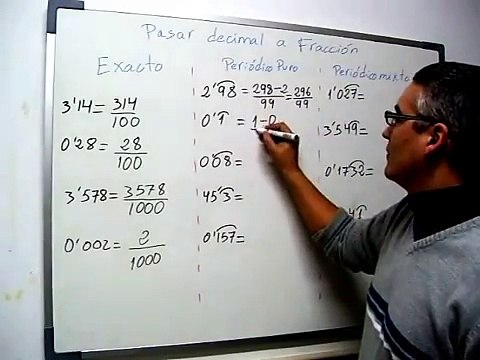 Pasar decimal a Fracción
Exacto
3'14 = 314/100
0'28 = 28/100
3'578 = 3578/1000
0'002 = 2/1000
Periódico Puro
2'9͡8 = 298-2/99 = 296/99
0'1͡ = 1-0
0'0͡8 =
45'3͡ =
0'1͡57 =
Periódico mixto
1'02͡7 =
3'54͡9 =
0'173͡2 =